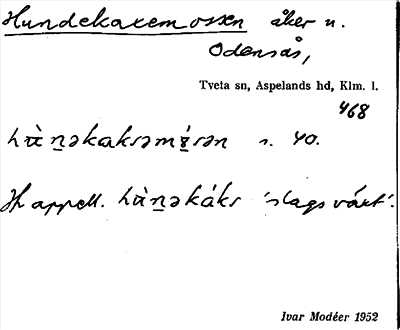 Hundekaxemossen åker u.
Odensås,
Tveta sn, Aspelands hd, Klm. l.
468
hù̀n̠əkaksəmɤ́sən s. 40.
Jfr appell. hù̀n̠əkáks 'slags växt'.
Ivar Modéer 1952